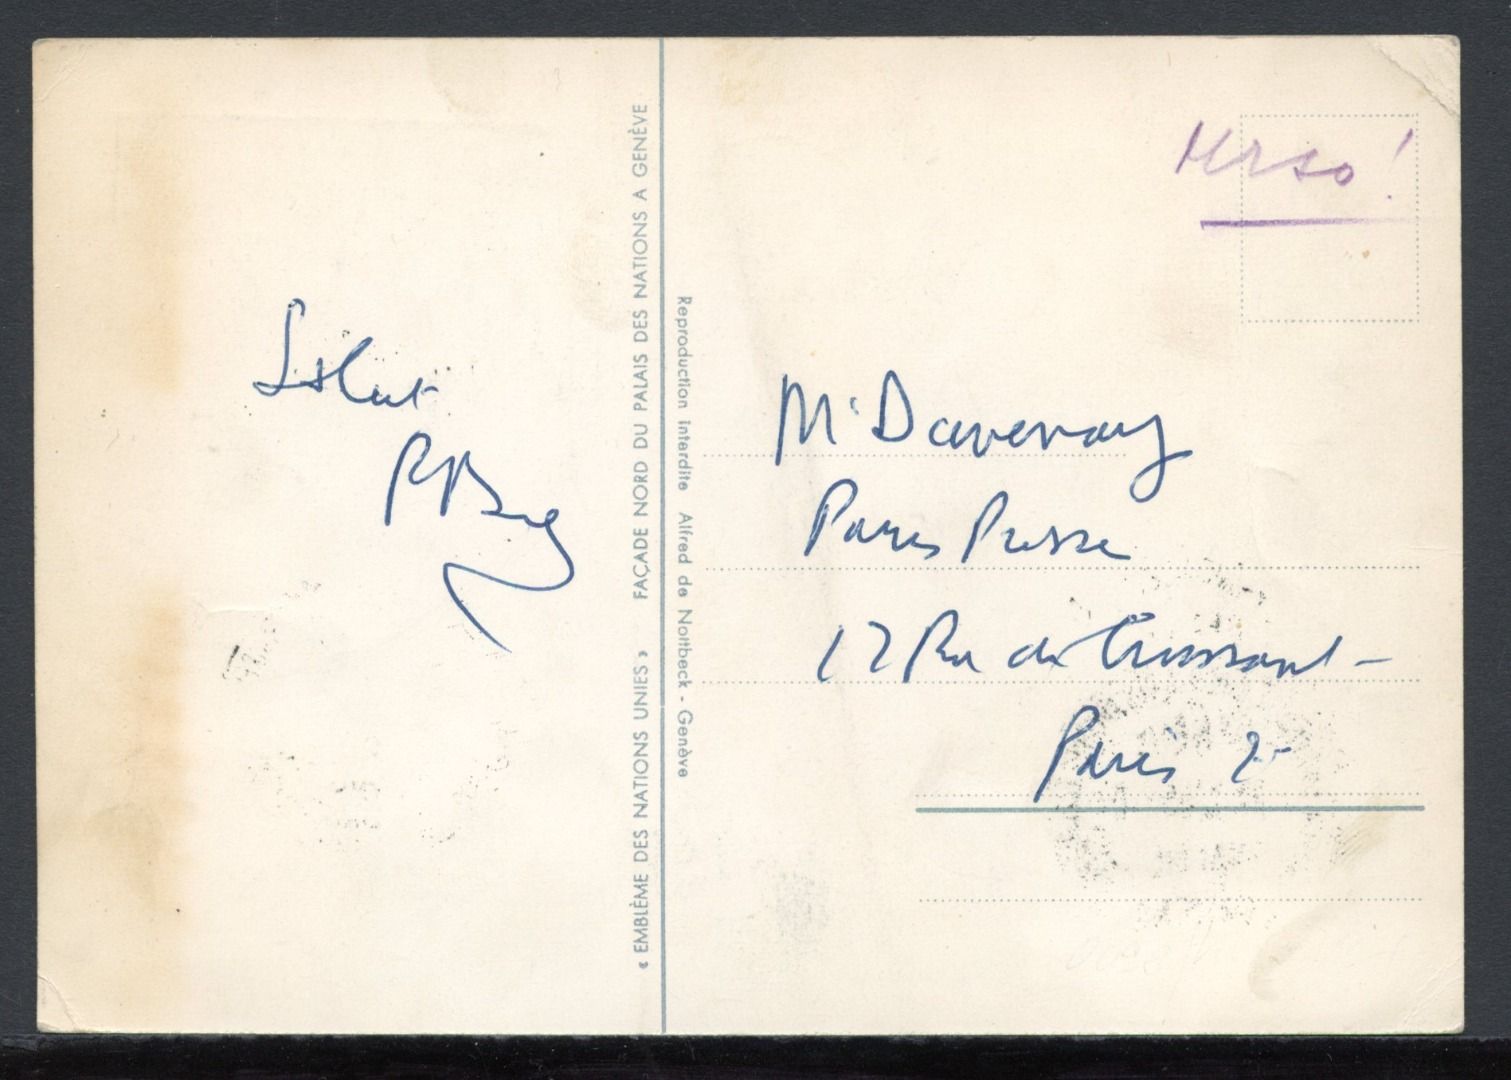 Salut
« EMBLÈME DES NATIONS UNIES » FAÇADE NORD DU PALAIS DES NATIONS A GENÈVE
Reproduction interdite Alfred de Nottbeck - Genève
verso !
Mr Davernay
Paris Presse
12 Rue du Croissant -
Paris 2e